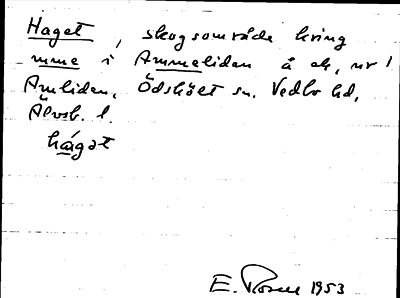 Haget, skogsområde kring
mme i Ammeliden å ek, nr 1
Amliden, Ödskölt sn. Vedbo hd,
Älvsb. l.
hágat
E. Rosell 1953